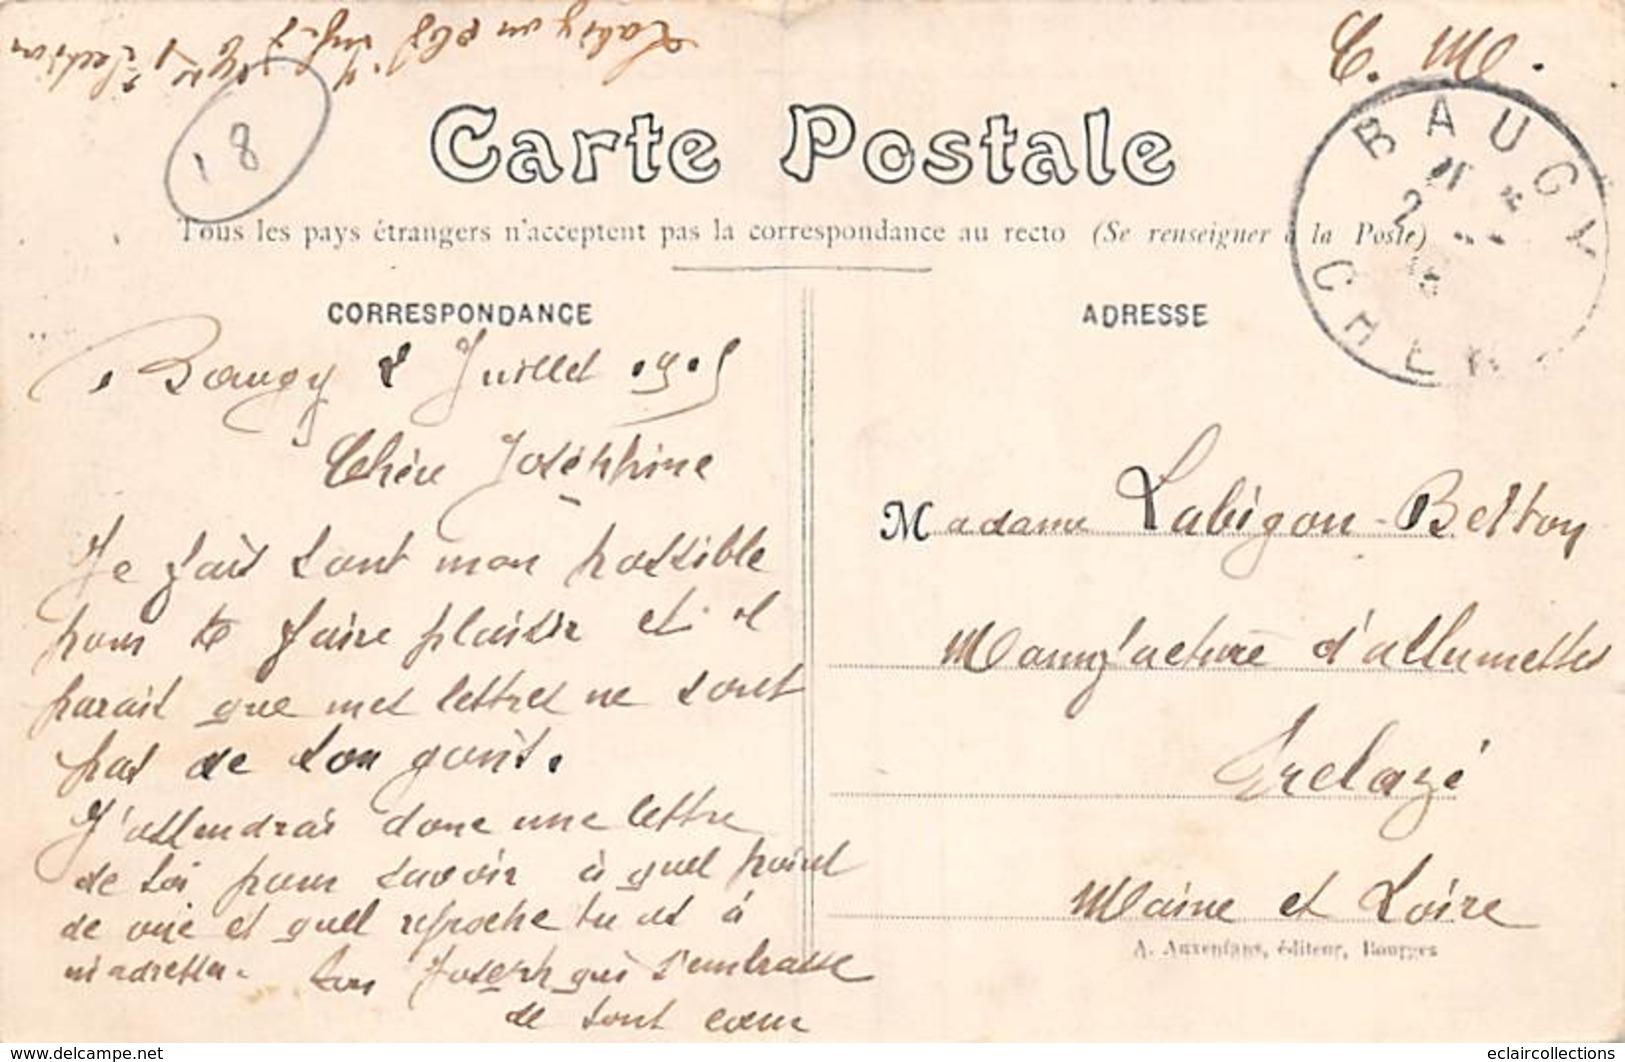 C. M.
18
Carte Postale
Tous les pays étrangers n'acceptent pas la correspondance au recto (Se renseigner à la Poste)
BAUGY
2
CHER
CORRESPONDANCE
Baugy 2 Juillet 1915
Chère Joséphine
Je fais tout mon possible
pour te faire plaisir et il
parait que mes lettres ne sont
pas de ton gout.
J'attendrai donc une lettre
de toi pour savoir à quel point
de vue et quel reproche tu as à
m'adresser. Ton Joseph qui t'embrasse
de tout cœur
ADRESSE
Madame Labigou-Betton
Manufacture d'allumettes
Trelazé
Maine et Loire
A. Auxenfans, éditeur, Bourges
eclaircollections